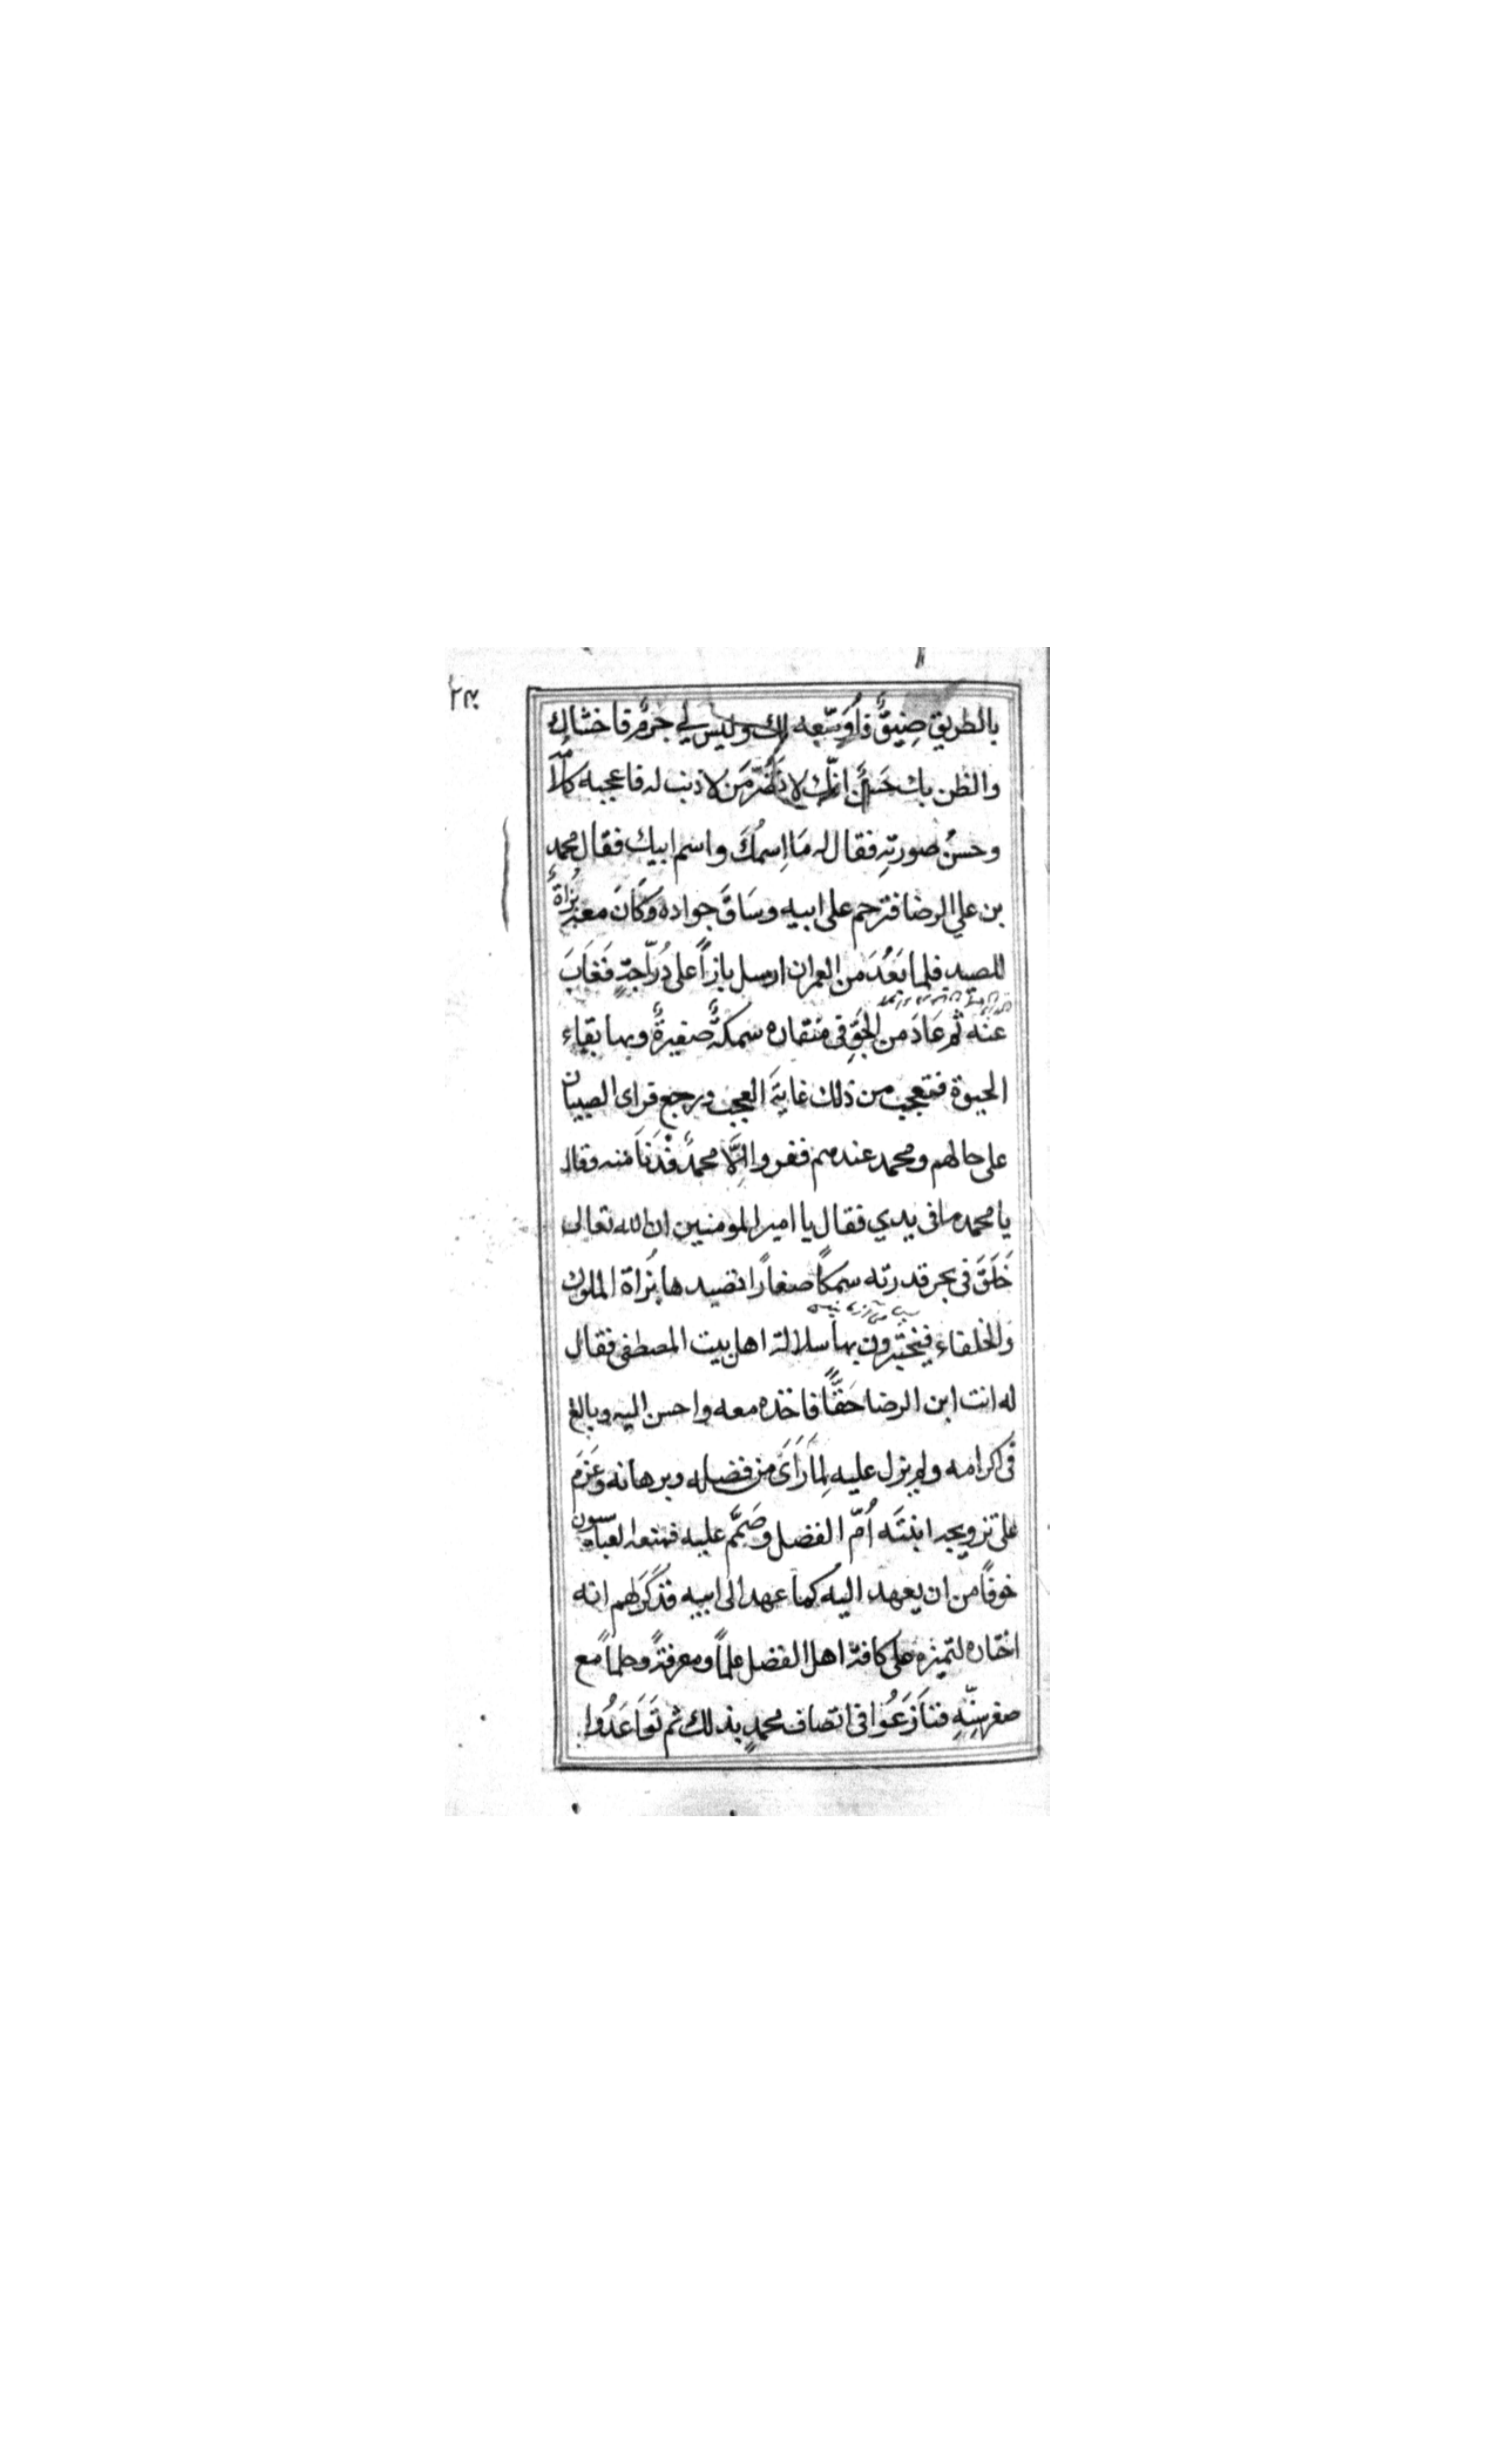 ٢٣٠
بالطريق ضِيقٌ فاُوَسّعه لك وليس لي جرمٌ فاخشاك
والظن بك حَسَنٌ انّك لا تَضُرّ مَن لا ذنب له فاعجبه كلامه
وحسنُ صورتِهِ فقال له مَا اِسمُكَ واسم ابيك فقال محمد
بن علي الرضا فترحم على ابيه وسَاقَ جواده وكَانَ معه بُزاةٌ
للصيد فلما بَعُدَ من العمران ارسل بازاً على دُرّاجةٍ فَغَابَ
عنه ثم عَادَ من الجَوِّ فى منقاره سمكةٌ صغيرةٌ وبها بقاء
الحيوة فتعجب من ذلك غايةَ العجب ورجع فراى الصبيان
على حالهم ومحمد عندهم ففروا اِلَّا محمدٌ فدَنَا منه وقال
يا محمد ما فى يدي فقال يا امير المومنين ان الله تعالى
خَلَقَ فى بحر قدرته سمكًا صغاراً تصيدها بُزاة الملوك
والخلفاء فيختبرون بها سلالة اهل بيت المصطفى فقال
له انت ابن الرضا حَقًّا فاخذه معه واحسن اليه وبالغ
فى اكرامه ولم يزل عليه لِمَا رَاَىَ من فضله وبرهانه وعَزَمَ
على تزويجه ابنتَه اُمّ الفضل وصَمَّم عليه فمنعه العباسيون
خوفًا من ان يعهد اليه كما عهد الى ابيه فذَكَرَ لهم انه
اختاره لتميزه على كافة اهل الفضل علماً ومعرفةً وحلماً مع
صغر سِنّهِ فتنَازَعُوا فى اتصاف محمدٍ بذلك ثم تَوَاعَدُوا